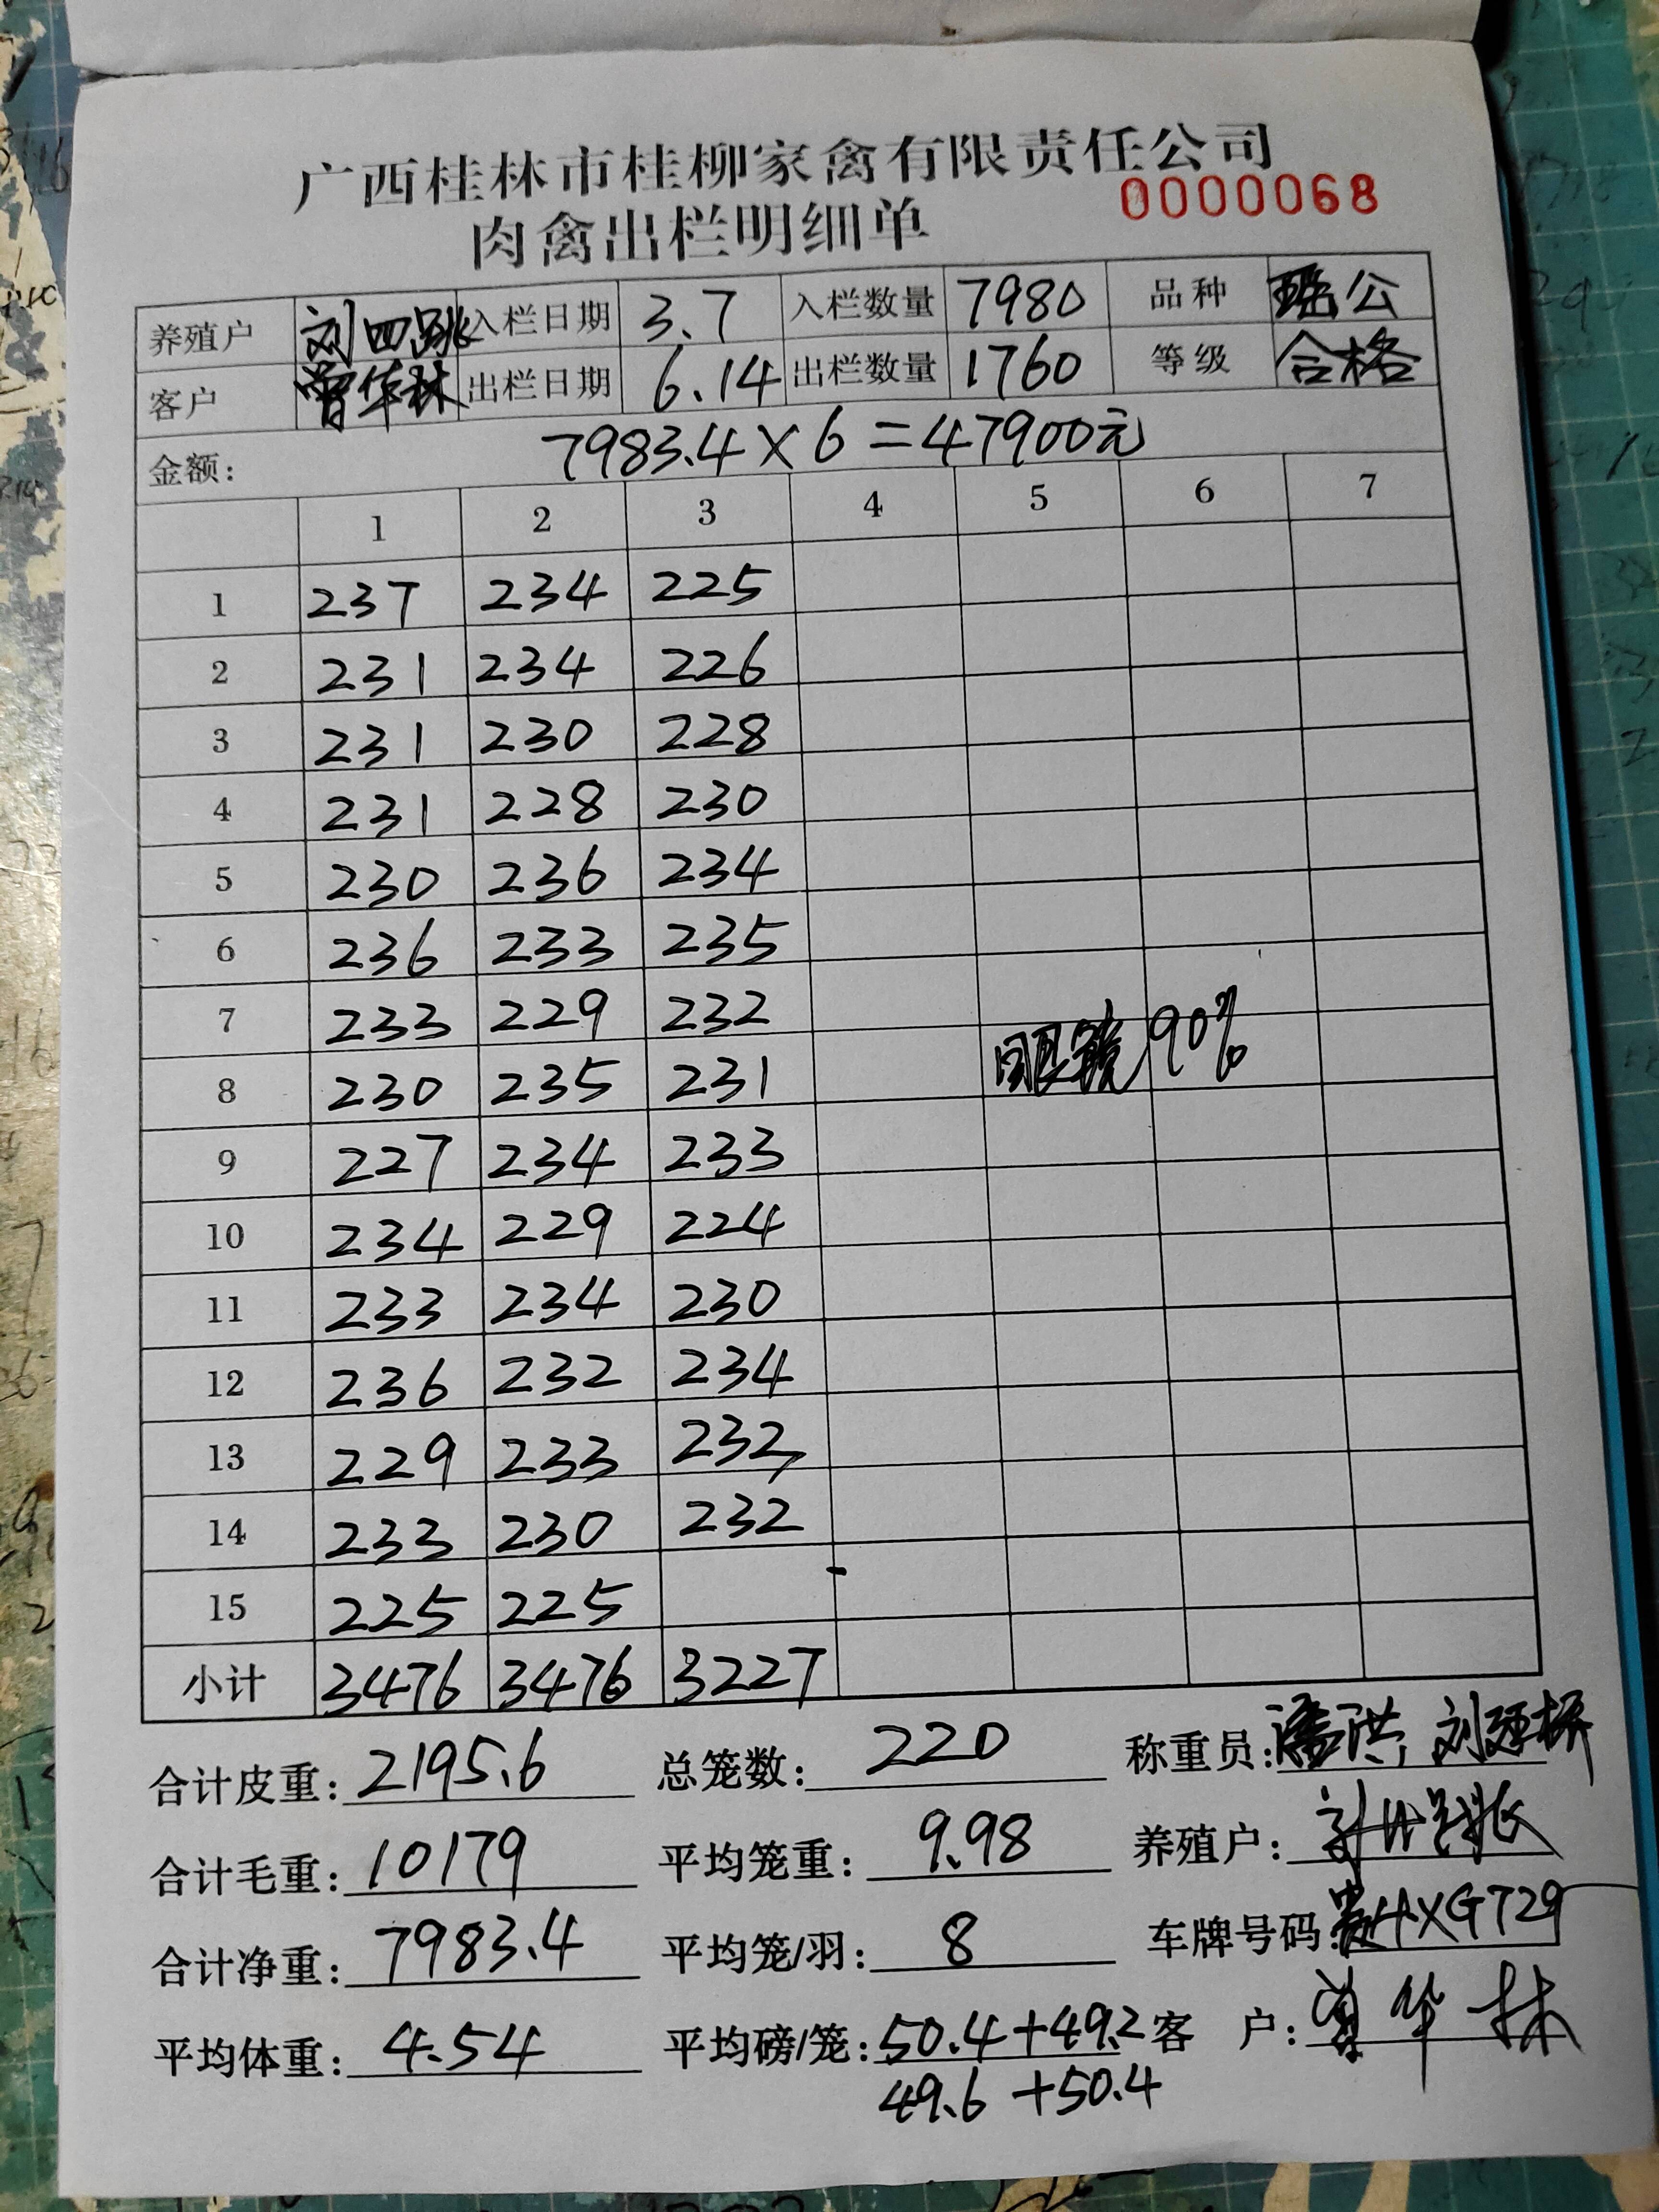 广西桂林市桂柳家禽有限责任公司
肉禽出栏明细单 0000068
养殖户 刘四跃 入栏日期 3.7 入栏数量 7980 品种 瑶公
客户 曾华林 出栏日期 6.14 出栏数量 1760 等级 合格
金额: 7983.4×6=47900元
1 2 3 4 5 6 7
1 237 234 225
2 231 234 226
3 231 230 228
4 231 228 230
5 230 236 234
6 236 233 235
7 233 229 232
8 230 235 231 眼镜90%
9 227 234 233
10 234 229 224
11 233 234 230
12 236 232 234
13 229 233 232
14 233 230 232
15 225 225
小计 3476 3476 3227
合计皮重: 2195.6 总笼数: 220 称重员: 潘洪, 刘
合计毛重: 10179 平均笼重: 9.98 养殖户:
合计净重: 7983.4 平均笼/羽: 8 车牌号码: XG729
平均体重: 4.54 平均磅/笼: 50.4+49.2 客 户: 曾华林
49.6+50.4